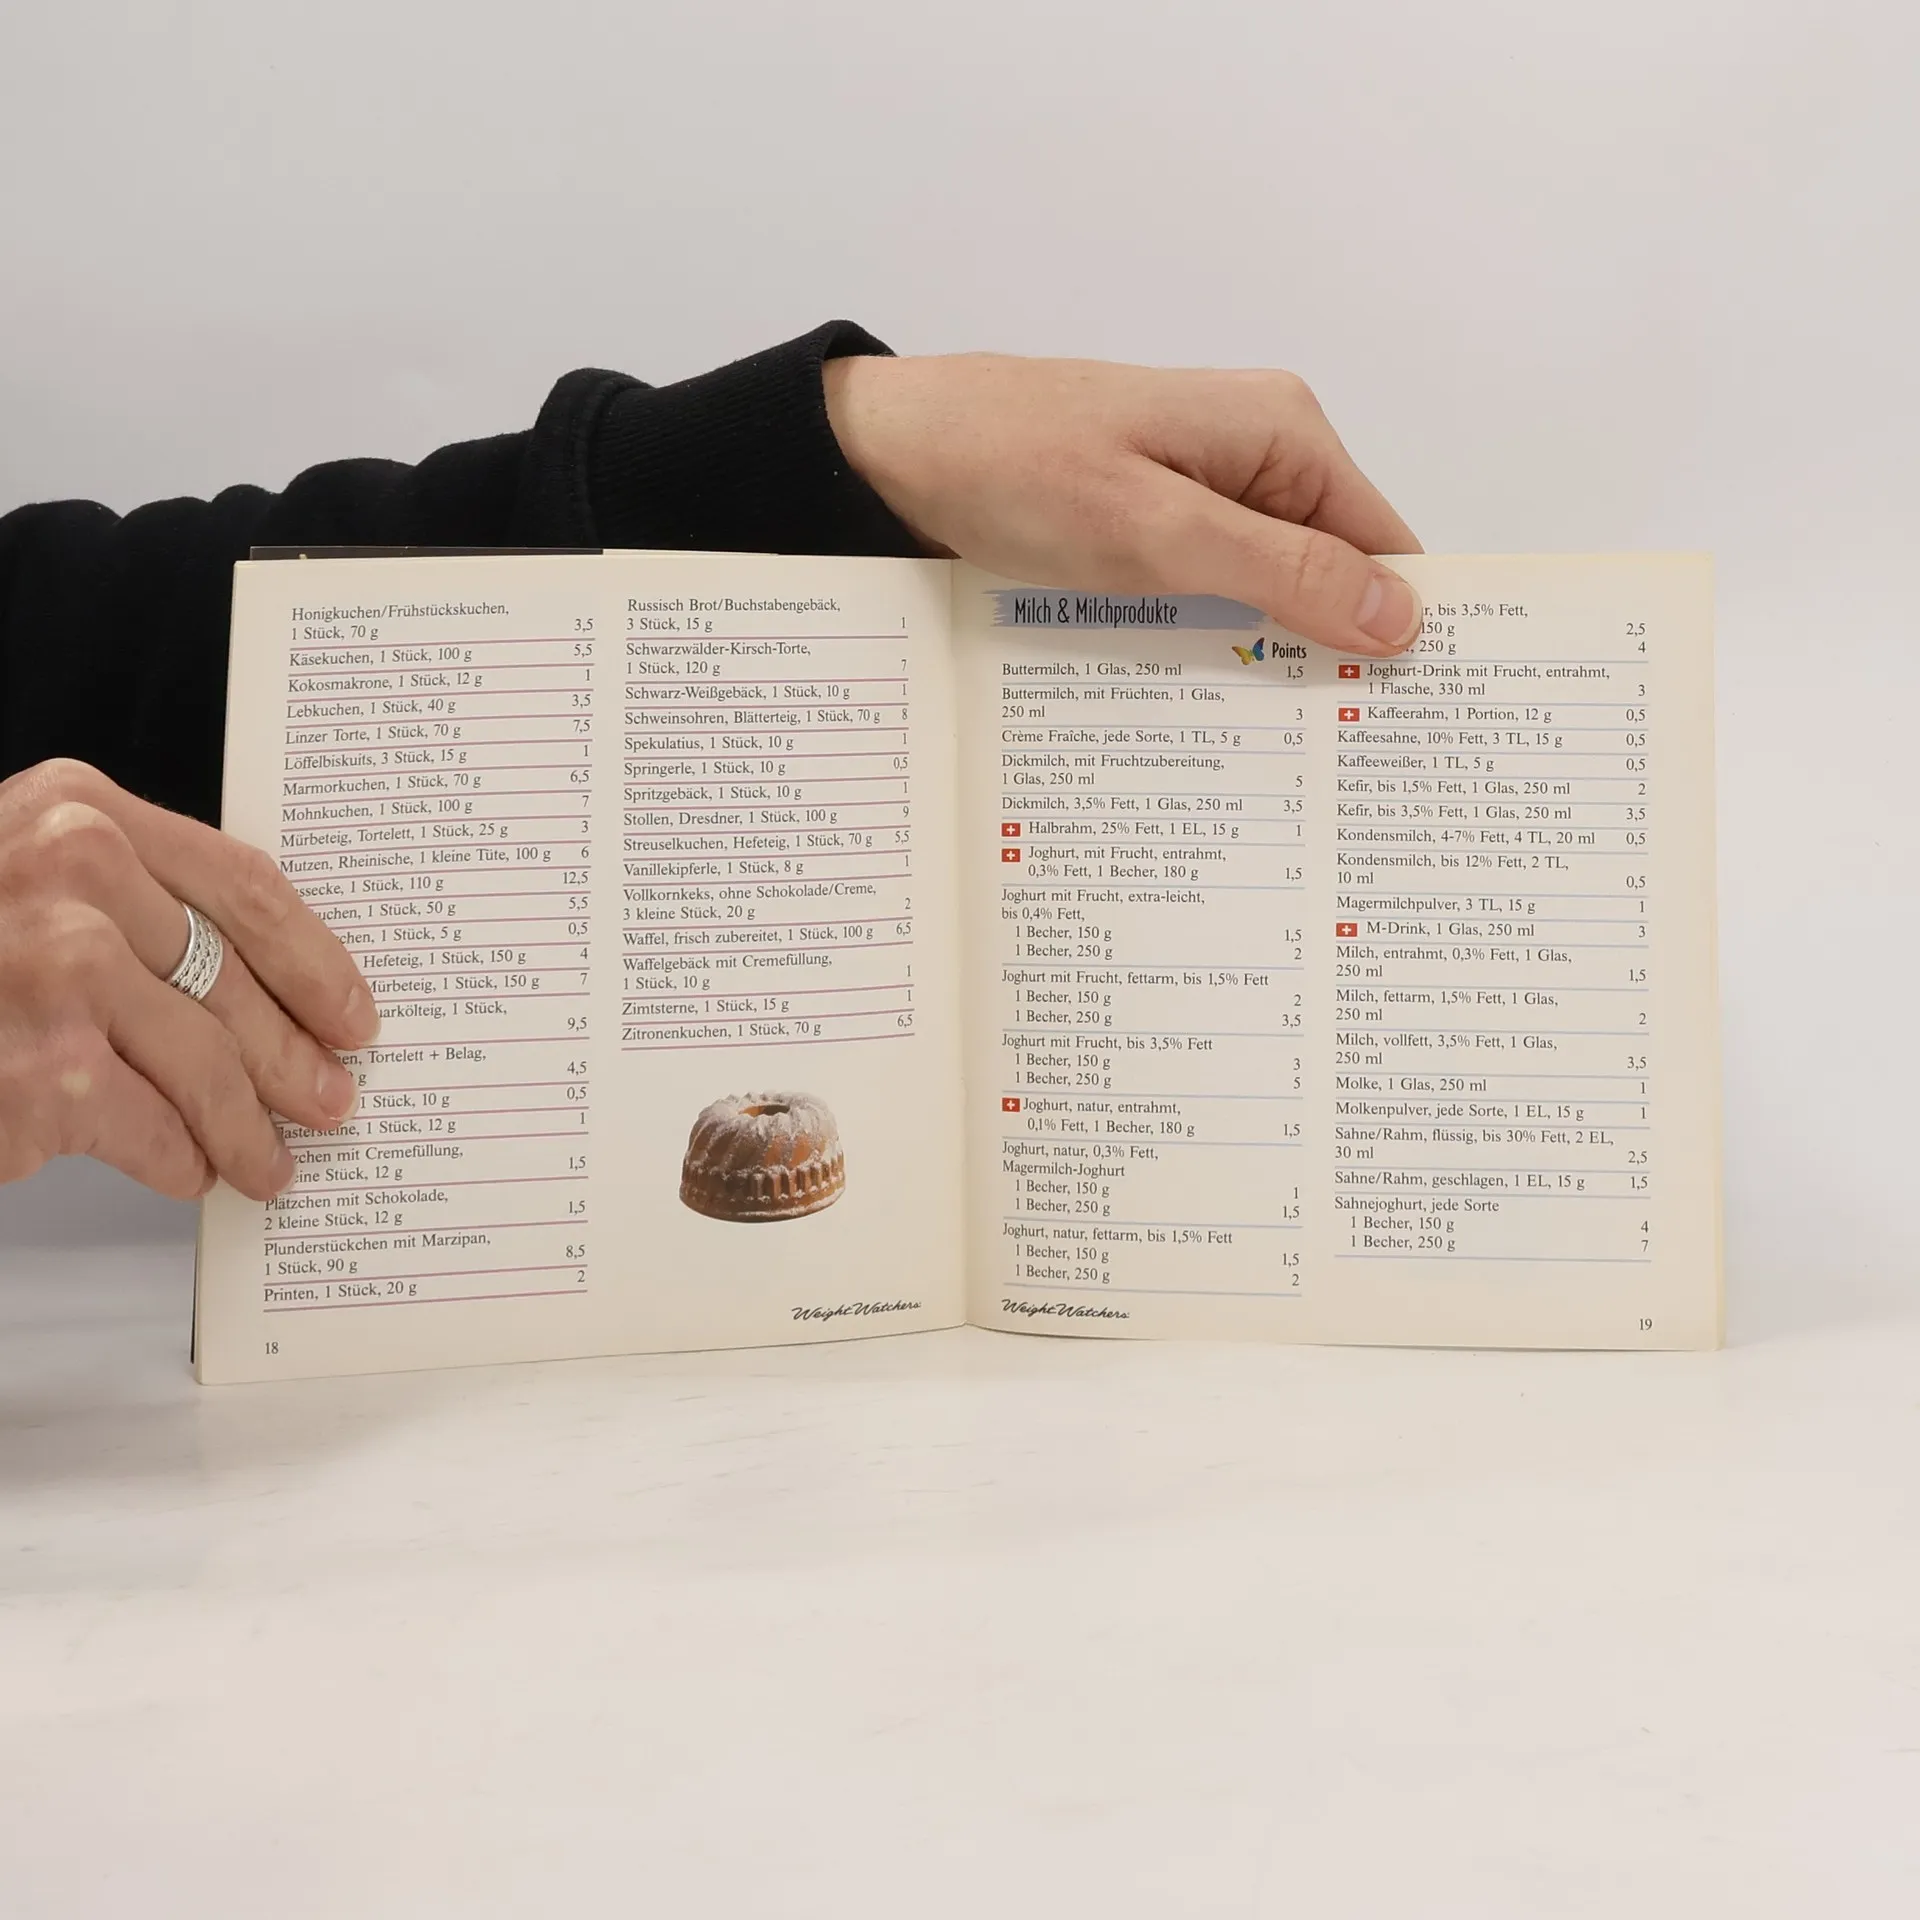 Honigkuchen/Frühstückskuchen,
1 Stück, 70 g 3,5
Käsekuchen, 1 Stück, 100 g 5,5
Kokosmakrone, 1 Stück, 12 g 1
Lebkuchen, 1 Stück, 40 g 3,5
Linzer Torte, 1 Stück, 70 g 7,5
Löffelbiskuits, 3 Stück, 15 g 1
Marmorkuchen, 1 Stück, 70 g 6,5
Mohnkuchen, 1 Stück, 100 g 7
Mürbeteig, Tortelett, 1 Stück, 25 g 3
Mutzen, Rheinische, 1 kleine Tüte, 100 g 6
1 Stück, 110 g 12,5
1 Stück, 50 g 5,5
1 Stück, 5 g 0,5
Hefeteig, 1 Stück, 150 g 4
Mürbeteig, 1 Stück, 150 g 7
1 Stück,
9,5
Tortelett + Belag,
g 4,5
1 Stück, 10 g 0,5
1 Stück, 12 g 1
mit Cremefüllung,
Stück, 12 g 1,5
Plätzchen mit Schokolade,
2 kleine Stück, 12 g 1,5
Plunderstückchen mit Marzipan,
1 Stück, 90 g 8,5
Printen, 1 Stück, 20 g 2
18
Russisch Brot/Buchstabengebäck,
3 Stück, 15 g 1
Schwarzwälder-Kirsch-Torte,
1 Stück, 120 g 7
Schwarz-Weißgebäck, 1 Stück, 10 g 1
Schweinsohren, Blätterteig, 1 Stück, 70 g 8
Spekulatius, 1 Stück, 10 g 1
Springerle, 1 Stück, 10 g 0,5
Spritzgebäck, 1 Stück, 10 g 1
Stollen, Dresdner, 1 Stück, 100 g 9
Streuselkuchen, Hefeteig, 1 Stück, 70 g 5,5
Vanillekipferle, 1 Stück, 8 g 1
Vollkornkeks, ohne Schokolade/Creme,
3 kleine Stück, 20 g 2
Waffel, frisch zubereitet, 1 Stück, 100 g 6,5
Waffelgebäck mit Cremefüllung,
1 Stück, 10 g 1
Zimtsterne, 1 Stück, 15 g 1
Zitronenkuchen, 1 Stück, 70 g 6,5
Weight Watchers
Milch & Milchprodukte
Points
Buttermilch, 1 Glas, 250 ml 1,5
Buttermilch, mit Früchten, 1 Glas,
250 ml 3
Crème Fraîche, jede Sorte, 1 TL, 5 g 0,5
Dickmilch, mit Fruchtzubereitung,
1 Glas, 250 ml 5
Dickmilch, 3,5% Fett, 1 Glas, 250 ml 3,5
Halbrahm, 25% Fett, 1 EL, 15 g 1
Joghurt, mit Frucht, entrahmt,
0,3% Fett, 1 Becher, 180 g 1,5
Joghurt mit Frucht, extra-leicht,
bis 0,4% Fett,
1 Becher, 150 g 1,5
1 Becher, 250 g 2
Joghurt mit Frucht, fettarm, bis 1,5% Fett
1 Becher, 150 g 2
1 Becher, 250 g 3,5
Joghurt mit Frucht, bis 3,5% Fett
1 Becher, 150 g 3
1 Becher, 250 g 5
Joghurt, natur, entrahmt,
0,1% Fett, 1 Becher, 180 g 1,5
Joghurt, natur, 0,3% Fett,
Magermilch-Joghurt
1 Becher, 150 g 1
1 Becher, 250 g 1,5
Joghurt, natur, fettarm, bis 1,5% Fett
1 Becher, 150 g 1,5
1 Becher, 250 g 2
Weight Watchers
bis 3,5% Fett,
150 g 2,5
250 g 4
Joghurt-Drink mit Frucht, entrahmt,
1 Flasche, 330 ml 3
Kaffeerahm, 1 Portion, 12 g 0,5
Kaffeesahne, 10% Fett, 3 TL, 15 g 0,5
Kaffeeweißer, 1 TL, 5 g 0,5
Kefir, bis 1,5% Fett, 1 Glas, 250 ml 2
Kefir, bis 3,5% Fett, 1 Glas, 250 ml 3,5
Kondensmilch, 4-7% Fett, 4 TL, 20 ml 0,5
Kondensmilch, bis 12% Fett, 2 TL,
10 ml 0,5
Magermilchpulver, 3 TL, 15 g 1
M-Drink, 1 Glas, 250 ml 3
Milch, entrahmt, 0,3% Fett, 1 Glas,
250 ml 1,5
Milch, fettarm, 1,5% Fett, 1 Glas,
250 ml 2
Milch, vollfett, 3,5% Fett, 1 Glas,
250 ml 3,5
Molke, 1 Glas, 250 ml 1
Molkenpulver, jede Sorte, 1 EL, 15 g 1
Sahne/Rahm, flüssig, bis 30% Fett, 2 EL,
30 ml 2,5
Sahne/Rahm, geschlagen, 1 EL, 15 g 1,5
Sahnejoghurt, jede Sorte
1 Becher, 150 g 4
1 Becher, 250 g 7
19